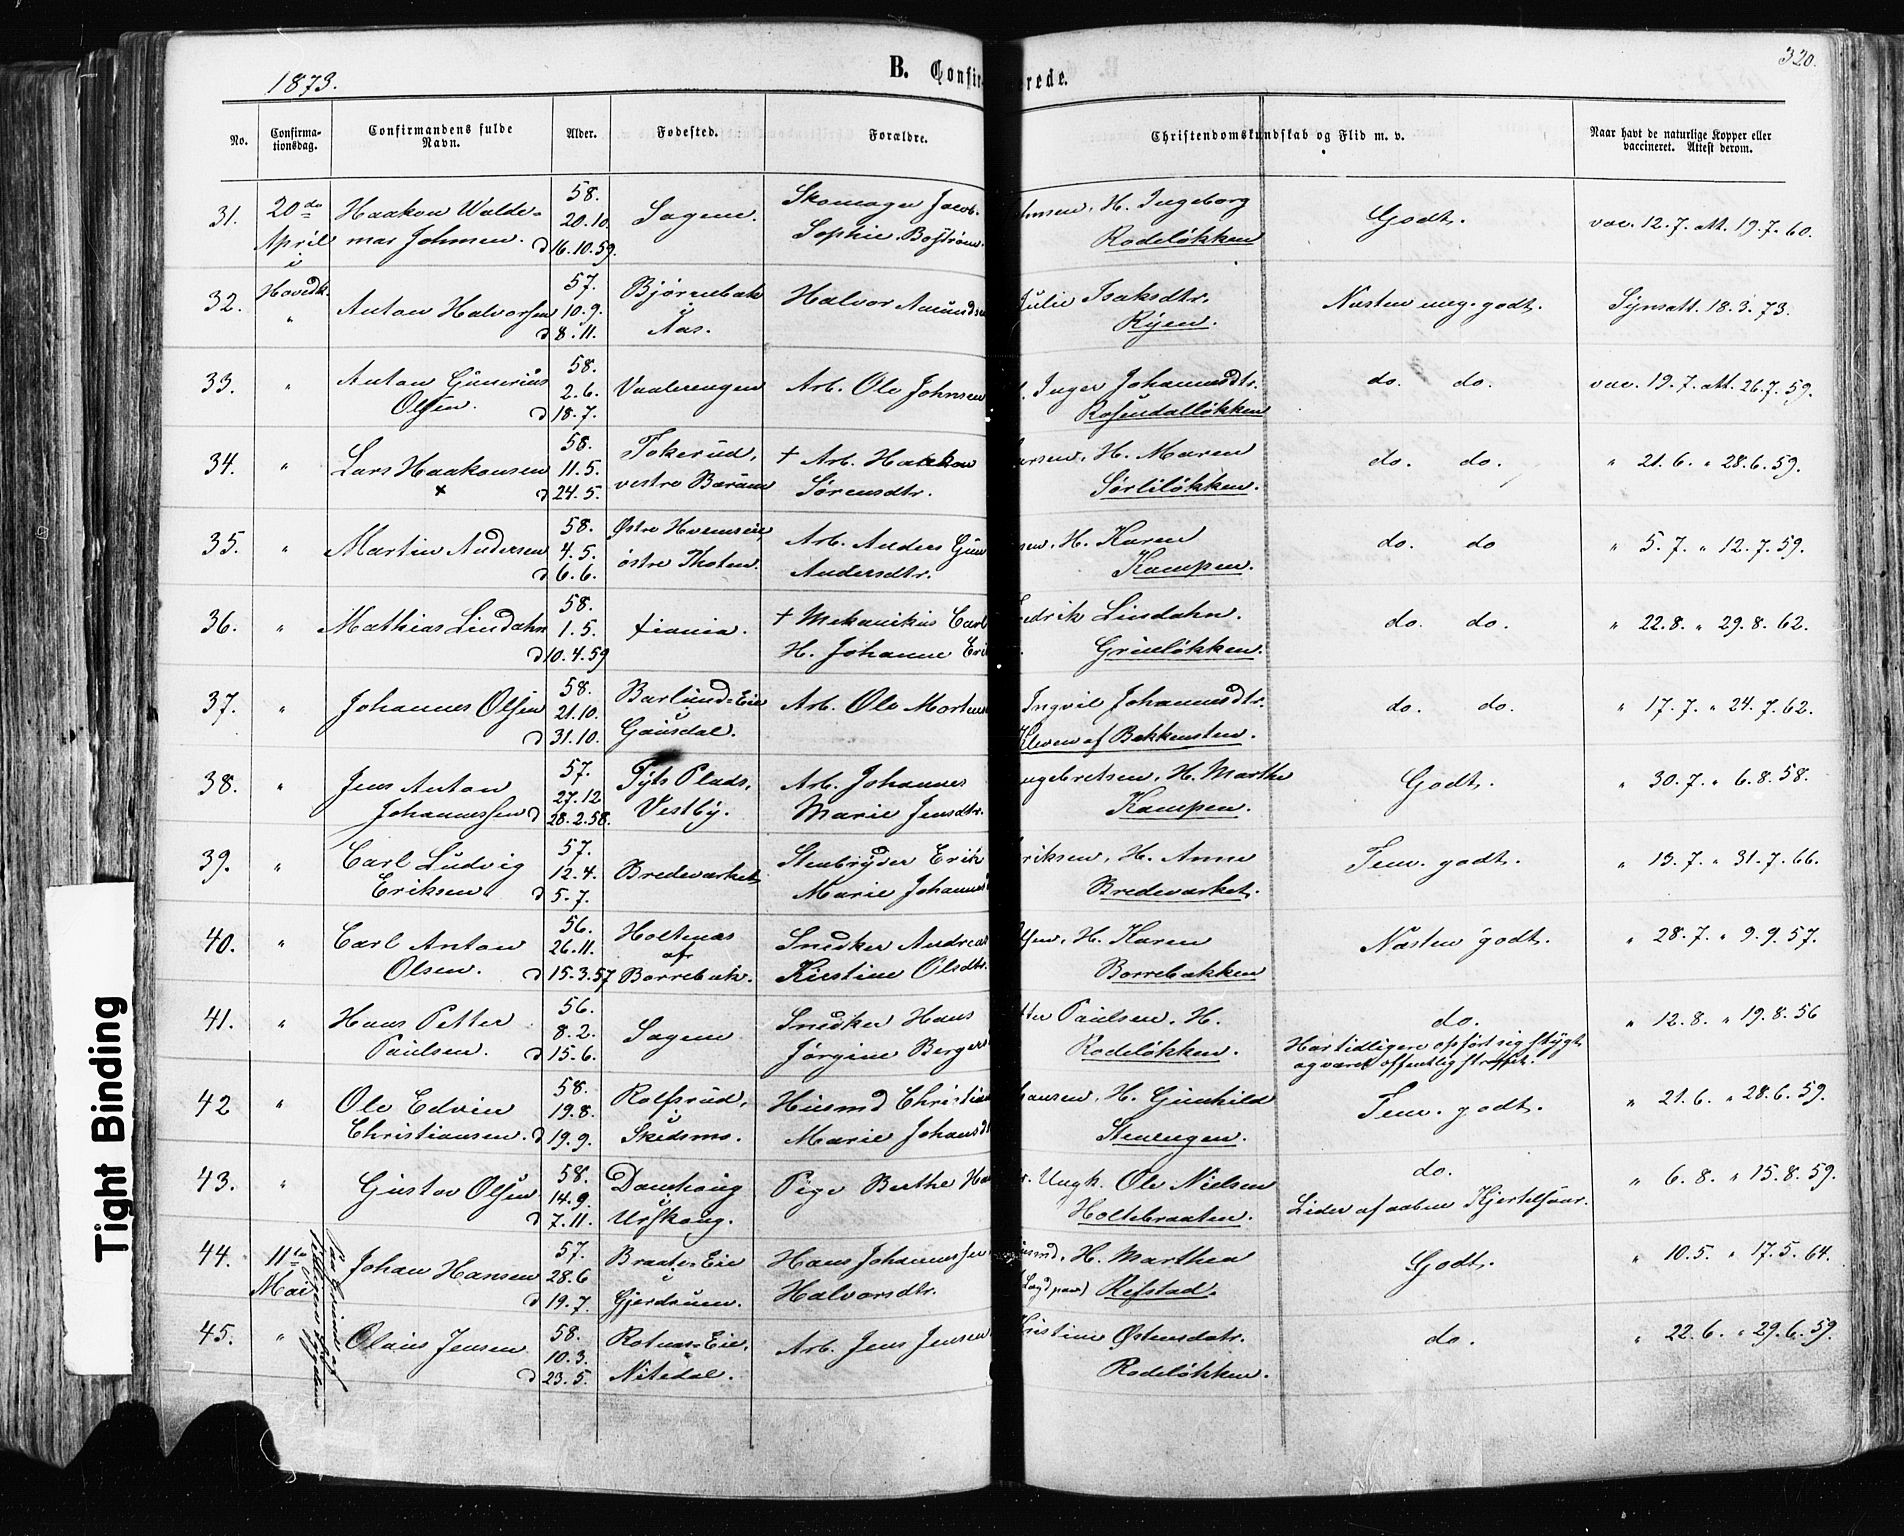 1873.
B. Confir
rede.
320.
No.
Confirma-
tionsdag.
Confirmandens fulde
Navn.
Alder.
Fødested.
Forældre.
Christendomskundskab og Flid m. v.
Naar havt de naturlige Kopper eller
vaccineret. Attest derom.
31. 20de Haakon Walde= 58. Skomager Jacob hnsen, H. Ingeborg
April mar Johnsen. 20.10. Sagene. Sophie Boström. Rodeløkken Godt. vac. 12.7. att. 19.7.60.
i d 16.10.59.
32. Hovedk. Anton Halvorsen 57. Bjørnebæk Halvor Amunds Julie Isaksdtr. Næsten meg. godt. Synsatt. 18.3.73.
" 10.9. i Ryen.
d 8.11. Aas.
33. " Anton Gunerius 58. Vaalerengen Arb. Ole Johnsen Inger Johannesdtr. do. do. vac. 19.7. att. 26.7.59.
Olsen. 2.6. Rosendalløkken
d 18.7.
34. " Lars Haakonsen 58. Tokerud, † Arb. Haakon arsen, H. Maren do. do. " 21.6. " 28.6.59.
x 11.5. vestre Bærum Sørensdtr. Sørliløkken.
d 24.5.
35. " Martin Andersen 58. Østre Hvemseie Arb. Anders Gun sen, H. Karen do. do " 5.7. " 12.7.59.
4.5. østre Thoten. Andersdtr. Kampen.
d 6.6.
36. " Mathias Lindahn 58. Xiania. † Mekanikus Carl edrik Lindahn. do. do. " 22.8. " 29.8.62.
1.5. H. Johanne Eri Grünløkken.
d 10.4.59
37. " Johannes Olsen 58. Barlund=Eie Arb. Ole Morten Ingvil Johannesdtr. do. do. " 17.7. " 24.7.62.
21.10. i Kleven af Bekkensten.
d 31.10. Gausdal.
38. " Jens Anton 57. Plads, Arb. Johannes ngebretsen, H. Marthe Godt. " 30.7. " 6.8.58.
Johannessen 27.12 Vestby. Marie Jensdtr. Kampen.
d 28.2.58.
39. " Carl Ludvig 57. Bredeværket, Stenbryder Erik riksen, H. Anne Tem. godt. " 13.7. " 31.7.66.
Eriksen. 12.4. Marie Johannes Bredeværket.
d 5.7.
40. " Carl Anton 56. Holtenæs Snedker Andreas lsen, H. Karen Næsten godt. " 28.7. " 9.9.57.
Olsen. 26.11. af Kirstine Olsdtr. Borrebækken
d 15.3.57 Borrebæk.
41. " Hans Petter 56. Sagene Snedker Hans tter Paulsen, H. do. " 12.8. " 19.8.56
Paulsen. 8.2. Jørgine Berger Rodeløkken. Har tidligere opført sig stygt
d 15.6. og været offentlig straffet.
42 " Ole Edvin 58. Rolfsrud, Husmd Christian hansen, H. Gunhild Tem. godt. " 21.6. " 28.6.59.
Christiansen. 19.8. i Marie Johansd Stenengen.
d 19.9. Skedsmo.
43. " Gustav Olsen 58. Danskoug Pige Berthe Ha r. Ungk. Ole Nielsen do. " 6.8. " 15.8.59.
14.9. i Holtebraaten. Lider af aaben Kjertelsaar.
d 7.11. Urskoug.
44. 11te Johan Hansen 57. Braate=Eie Hans Johannessen usmd, H. Marthea Godt. " 10.5. " 17.5.64.
Mai 28.6 i Halvorsdtr. Refstad.
d 19.7. Gjerdrum.
45. " Olaus Jensen 58. Rotnæs=Eie, Arb. Jens Jensen Kristine Østensdatr. do. " 22.6. " 29.6.59.
10.3. Nitedal. Rodeløkken.
d 23.5.
Paa Grund af
Tight Binding